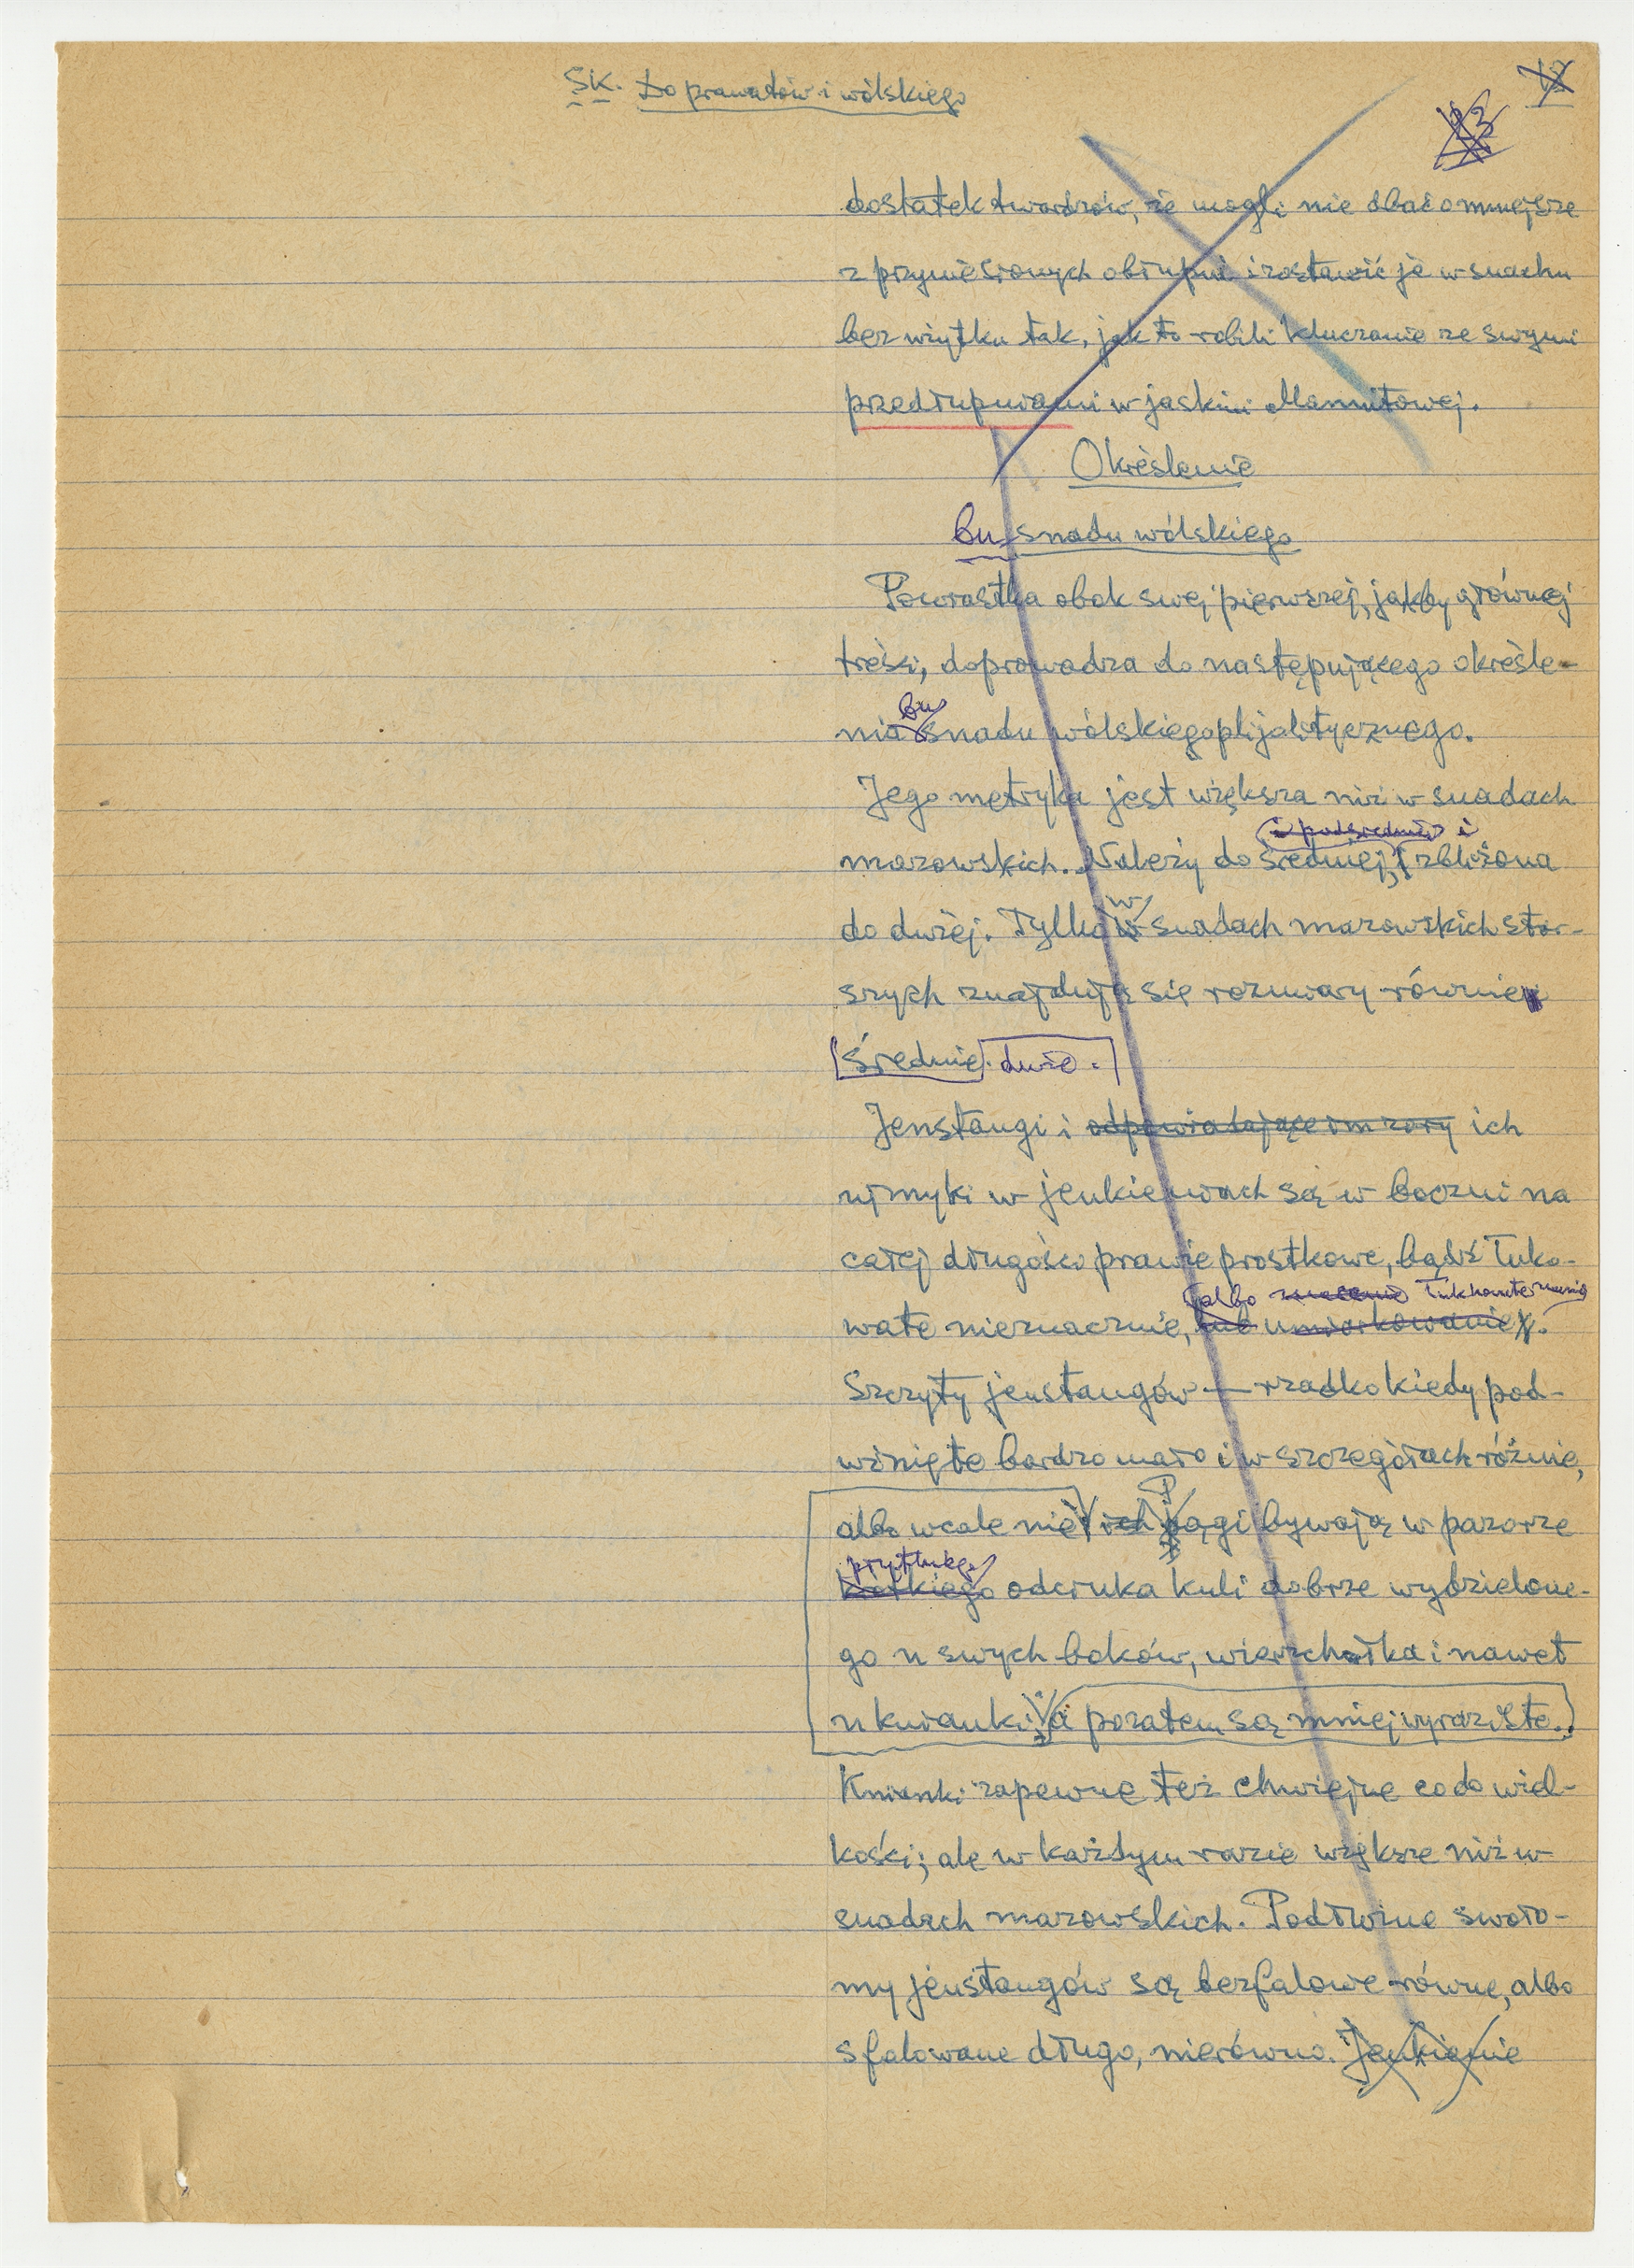 SK. Do prawatów i wólskiego
12
23
dostatek twardzów, że mogli nie dbać o mniejsze
z przyniesionych obłupni i zostawić je w snachu
bez użytku tak, jak to robili kluczanie ze swymi
przedłupniami w jaskini Mamutowej.
Określenie
bu snadu wólskiego
Powrastka obok swej pierwszej, jakby głównej
treści, doprowadza do następującego określe-
nia bu snadu wólskiego plijalstycznego.
Jego metryka jest większa niż w snadach
i podśrednio i
mazowskich. Należy do średniej, zbliżona
do dużej. Tylko w snadach mazowskich star-
szych znajdują się rozmiary równie
średnie. duże.
Jenstangi i odpowiadające im zary ich
wymyki w jenkieniach są w boczni na
całej długości prawie prostkowe, bądź łuko-
albo znacznie łukowate
wate nieznacznie, lub umiarkowanie.
Szczyty jenstangów — rzadko kiedy pod-
winięte bardzo mało i w szczegółach różnie,
albo wcale nie ich Pągi bywają w pazorze
przytłukego
krótkiego odcinka kuli dobrze wydzielone-
go u swych boków, wierzchołka i nawet
u knianki, a pozatem są mniej wyraziste.
Knianki zapewne też chwiejne co do wiel-
kości; ale w każdym razie większe niż w
snadach mazowskich. Podłużne swoło-
my jenstangów są bezfalowe równe, albo
sfalowane długo, nierówno. Jenkienie